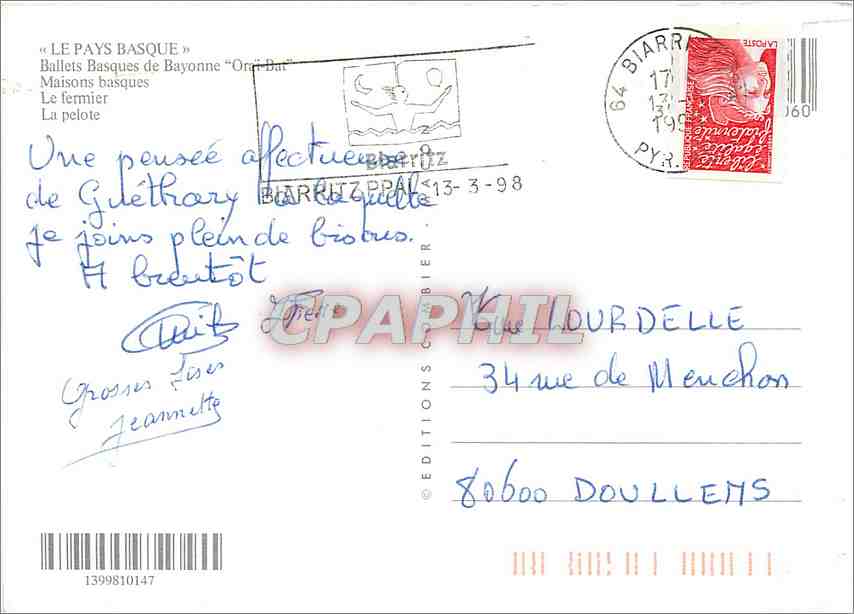 « LE PAYS BASQUE »
Ballets Basques de Bayonne "Oraï-Bat"
Maisons basques
Le fermier
La pelote
Biarritz
BIARRITZ PPAL 13-3-98
64 BIARRI
17
13-
199
PYR.
LA POSTE
RÉPUBLIQUE FRANÇAISE
liberté
égalité
fraternité
060
Une pensée affectueuse
de Guéthary à laquelle
je joins plein de bisous.
A bientôt
Grosses bises
Jeannette
CPAPHIL
© EDITIONS COMBIER
LOURDELLE
34 rue de Menchon
80600 DOULLENS
1399810147